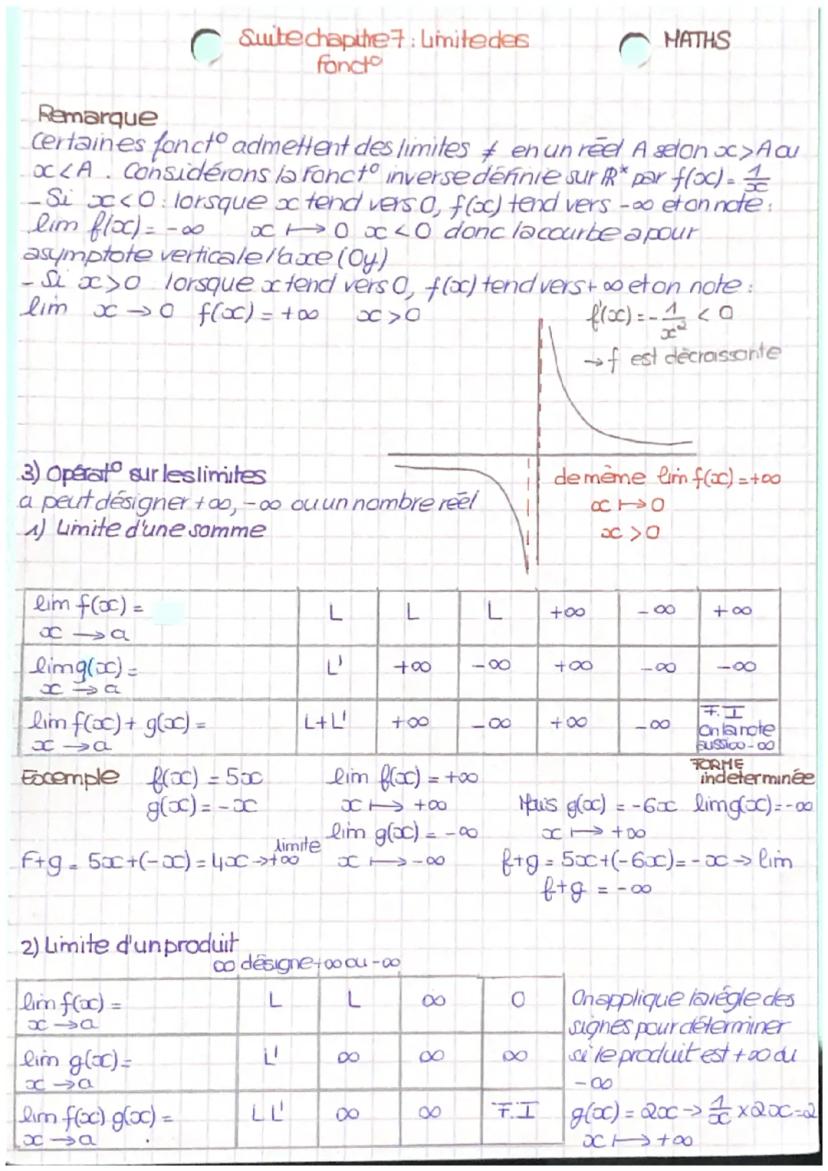 Suite chapitre 7 : Limite des
fonct°
MATHS
Remarque
Certaines fonct° admettent des limites ≠ en un réel A selon x>A ou
x<A. Considérons la fonct° inverse définie sur ℝ* par f(x) = 1/x
- Si x<0 : lorsque x tend vers 0, f(x) tend vers -∞ et on note :
lim f(x) = -∞ x ↦ 0 x<0 donc la courbe a pour
asymptote verticale l'axe (Oy)
- Si x>0 lorsque x tend vers 0, f(x) tend vers +∞ et on note :
lim x → 0 f(x) = +∞ x>0
f'(x) = -1/x² < 0
→ f est décroissante
3) Opérat° sur les limites
a peut désigner +∞, -∞ ou un nombre réel
1) Limite d'une somme
de même lim f(x) = +∞
x ↦ 0
x > 0
lim f(x) = L L L +∞ -∞ +∞
x → a
lim g(x) = L' +∞ -∞ +∞ -∞ -∞
x → a
lim f(x) + g(x) = L+L' +∞ -∞ +∞ -∞ F.I
x → a
On la note
aussi ∞-∞
FORME
indeterminée
Exemple f(x) = 5x lim f(x) = +∞
g(x) = -x x ↦ +∞
lim g(x) = -∞
x ↦ -∞
F+g = 5x+(-x) = 4x → +∞
limite
Mais g(x) = -6x lim g(x) = -∞
x ↦ +∞
f+g = 5x+(-6x) = -x → lim
f+g = -∞
2) Limite d'un produit
∞ désigne +∞ ou -∞
lim f(x) = L L ∞ 0
x → a
lim g(x) = L' ∞ ∞ ∞
x → a
lim f(x) g(x) = LL' ∞ ∞ F.I
x → a
On applique la régle des
signes pour déterminer
si le produit est +∞ ou
-∞
g(x) = 2x → 1/x × 2x = 2
x ↦ +∞